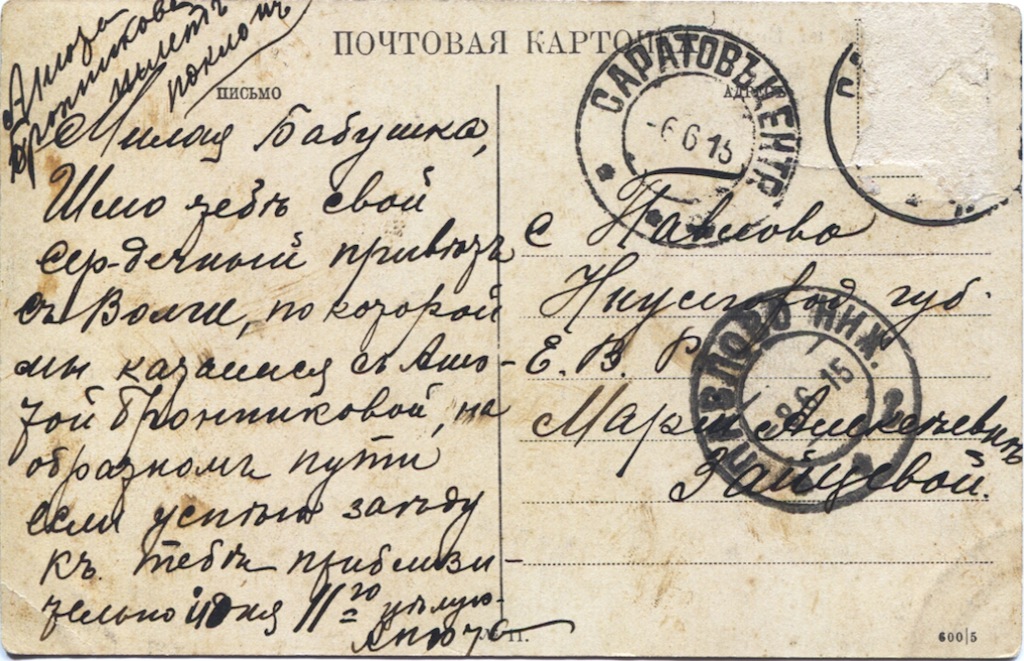 ПОЧТОВАЯ КАРТОЧКА
ПИСЬМО
АДРЕСЪ
Анюта
Бронникова
шлетъ
поклонъ
Милая Бабушка,
Шлю тебѣ свой
сердечный привѣтъ
съ Волги, по которой
мы катаемся съ Аню-
той Бронниковой, на
обратномъ пути
если успѣю заѣду
къ тебѣ приблизи-
тельно Iюня 11го цѣлую
Анюта
с Павлово
Нижегород губ.
Е. В. Р
Марiи Алексѣевнѣ
Зайцевой.
САРАТОВЪ ЦЕНТР
-6 6 15
ПАВЛОВО НИЖ.
8 6 15
600|5